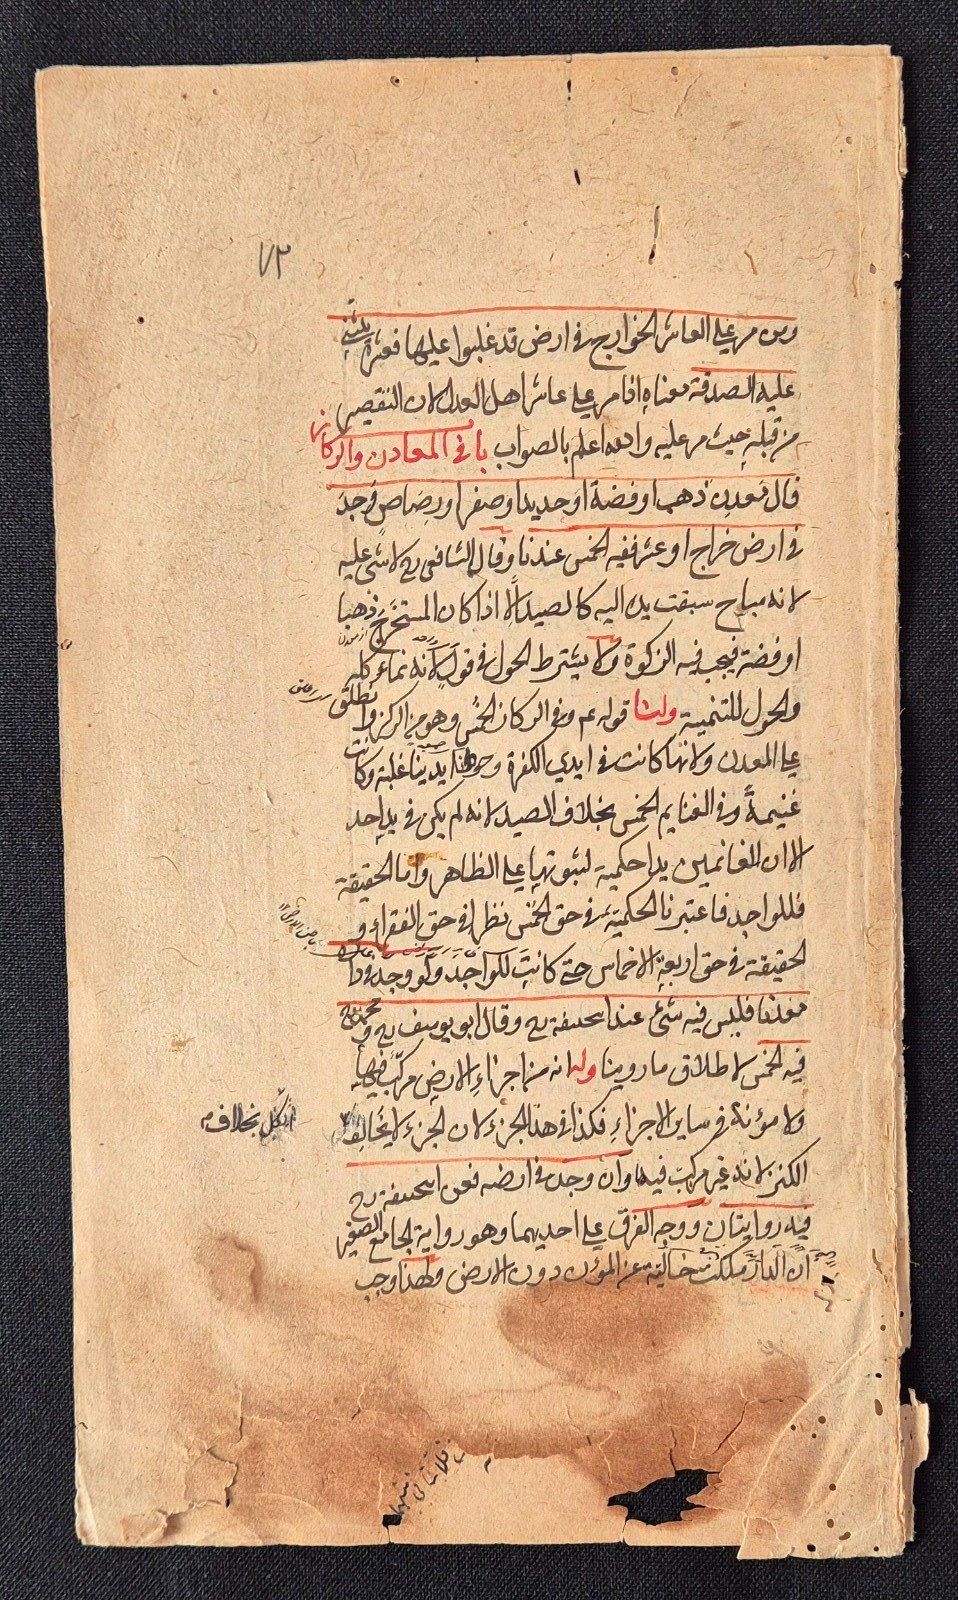 ٧٢
ومن مر على عاشر الخوارج في ارض قد غلبوا عليها فعشره يثنى
عليه الصدقة معناه اذا مر على عاشر اهل العدل لان التقصير
من قبله حيث مر عليه والله اعلم بالصواب باب في المعادن والركاز
قال معدن ذهب او فضة او حديد او صفر او رصاص وجد
في ارض خراج او عشر ففيه الخمس عندنا وقال الشافعي رح لا شئ عليه
لانه مباح سبقت يده اليه كالصيد الا اذا كان المستخرج ذهبا
او فضة فيجب فيه الزكوة ولا يشترط الحول في قول لانه نماء كله
والحول للتنمية ولنا قوله عم وفي الركاز الخمس وهو من الركز وانطلق
على المعدن ولانها كانت في ايدي الكفرة وحوتها ايدينا غلبة وكانت
غنيمة وفي الغنايم الخمس بخلاف الصيد لانه لم يكن في يد احد
الا ان للغانمين يدا حكمية لثبوتها على الظاهر واما الحقيقة
فللواجد فاعتبرنا الحكمية في حق الخمس نظرا في حق الفقراء و
الحقيقة في حق اربعة الاخماس حتى كانت للواجد ولو وجد في داره
معدنا فليس فيه شئ عند ابيحنيفة رح وقال ابو يوسف رح و محمد رح
فيه الخمس لاطلاق ما روينا وله انه من اجزاء الارض مركب فيها
ولا مؤنة في ساير الاجزاء فكذا في هذا الجزء لان الجزء لا يخالف
الكل بخلاف
الكنز لانه غير مركب فيها وان وجد في ارضه فعن ابيحنيفة رح
فيه روايتان ووجه الفرق على احديهما وهو رواية الجامع الصغير
ان الدار ملكت خالية عن المؤن دون الارض ولهذا وجب